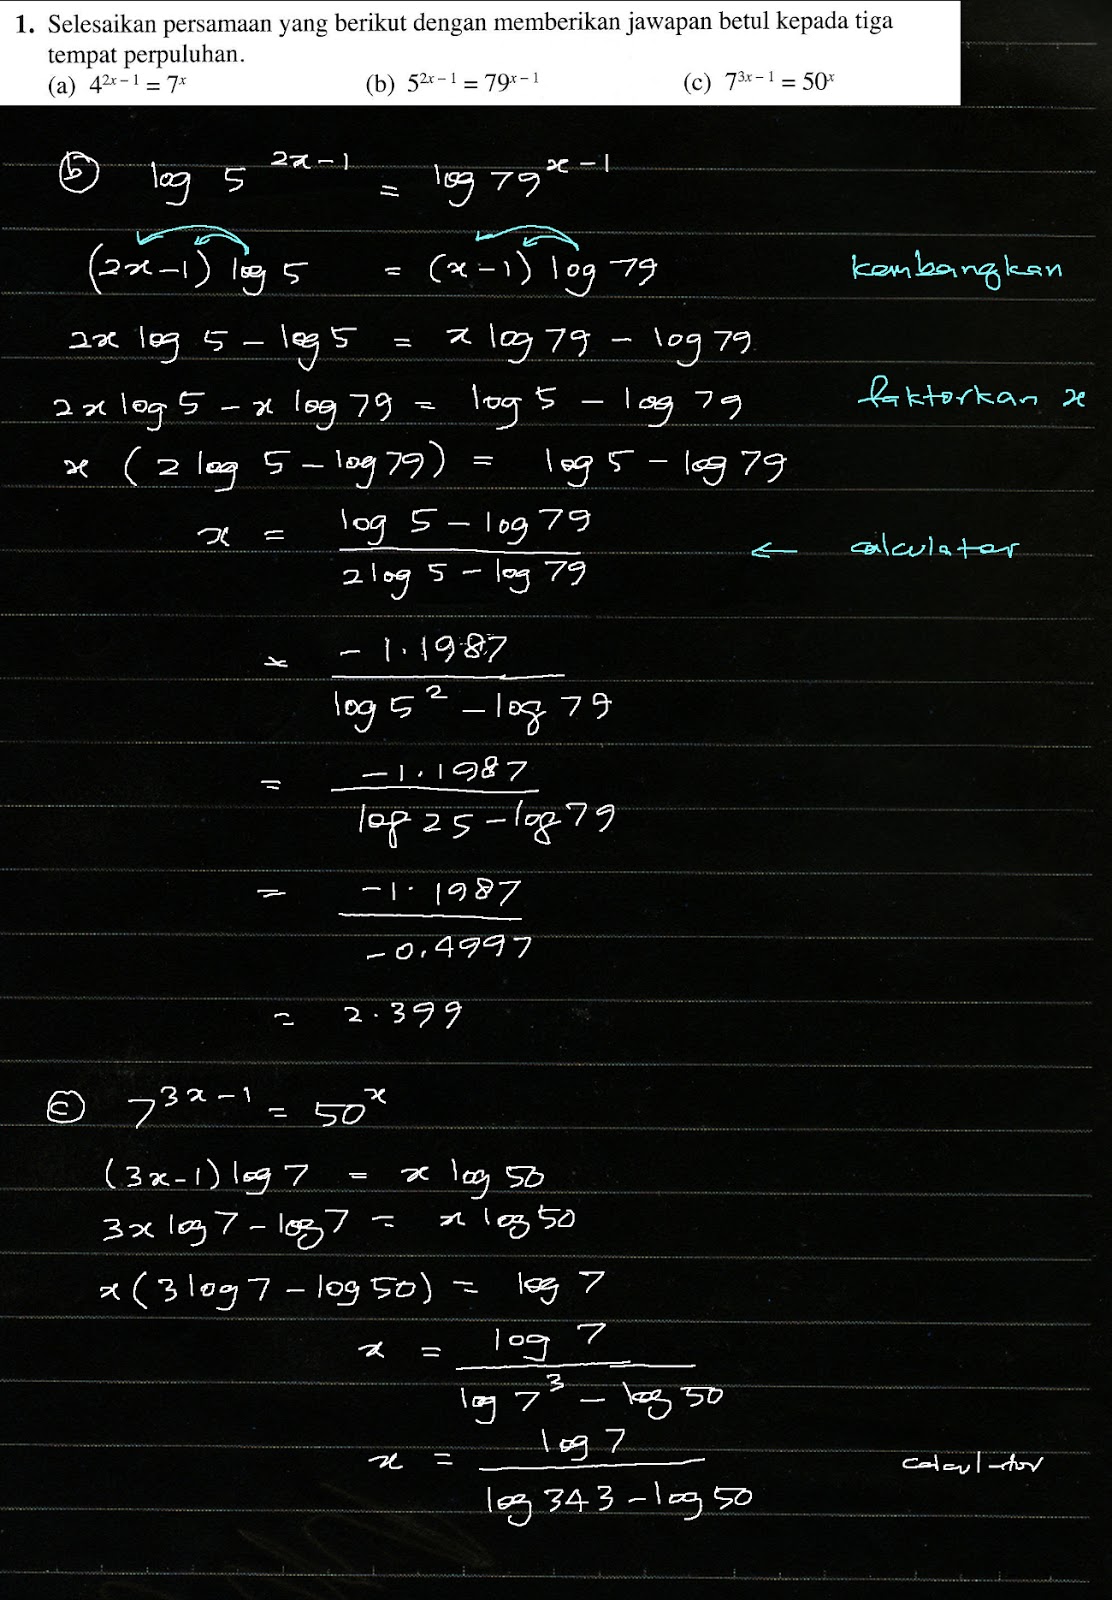 1. Selesaikan persamaan yang berikut dengan memberikan jawapan betul kepada tiga
tempat perpuluhan.
(a) 4^{2x – 1} = 7^x (b) 5^{2x – 1} = 79^{x – 1} (c) 7^{3x – 1} = 50^x
(b) log 5^{2x – 1} = log 79^{x – 1}
(2x – 1) log 5 = (x – 1) log 79 kembangkan
2x log 5 – log 5 = x log 79 – log 79
2x log 5 – x log 79 = log 5 – log 79 faktorkan x
x (2 log 5 – log 79) = log 5 – log 79
x = \frac{log 5 – log 79}{2 log 5 – log 79} ← calculator
= \frac{– 1.1987}{log 5^2 – log 79}
= \frac{–1.1987}{log 25 – log 79}
= \frac{–1.1987}{–0.4997}
= 2.399
(c) 7^{3x – 1} = 50^x
(3x – 1) log 7 = x log 50
3x log 7 – log 7 = x log 50
x (3 log 7 – log 50) = log 7
x = \frac{log 7}{log 7^3 – log 50}
x = \frac{log 7}{log 343 – log 50} calculator